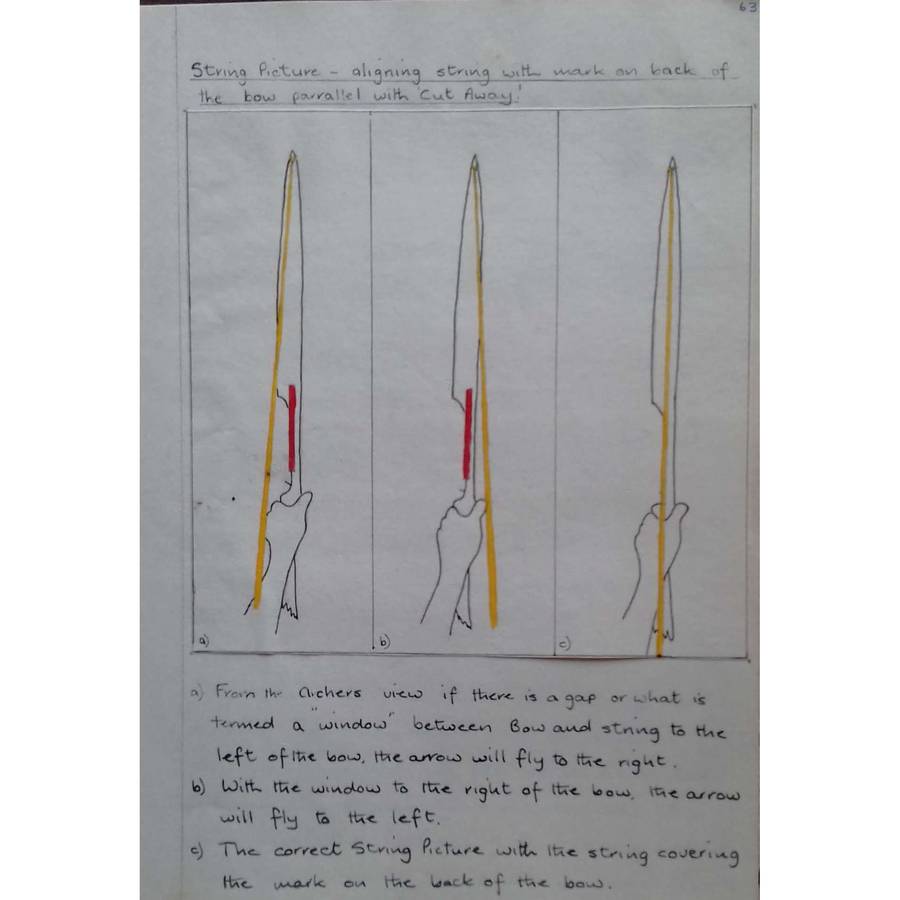 63
String Picture - aligning string with mark on back of
the bow parrallel with 'Cut Away'
a)
b)
c)
a) From the archers view if there is a gap or what is
termed a "window" between Bow and string to the
left of the bow, the arrow will fly to the right.
b) With the window to the right of the bow, the arrow
will fly to the left.
c) The correct String Picture with the string covering
the mark on the back of the bow.